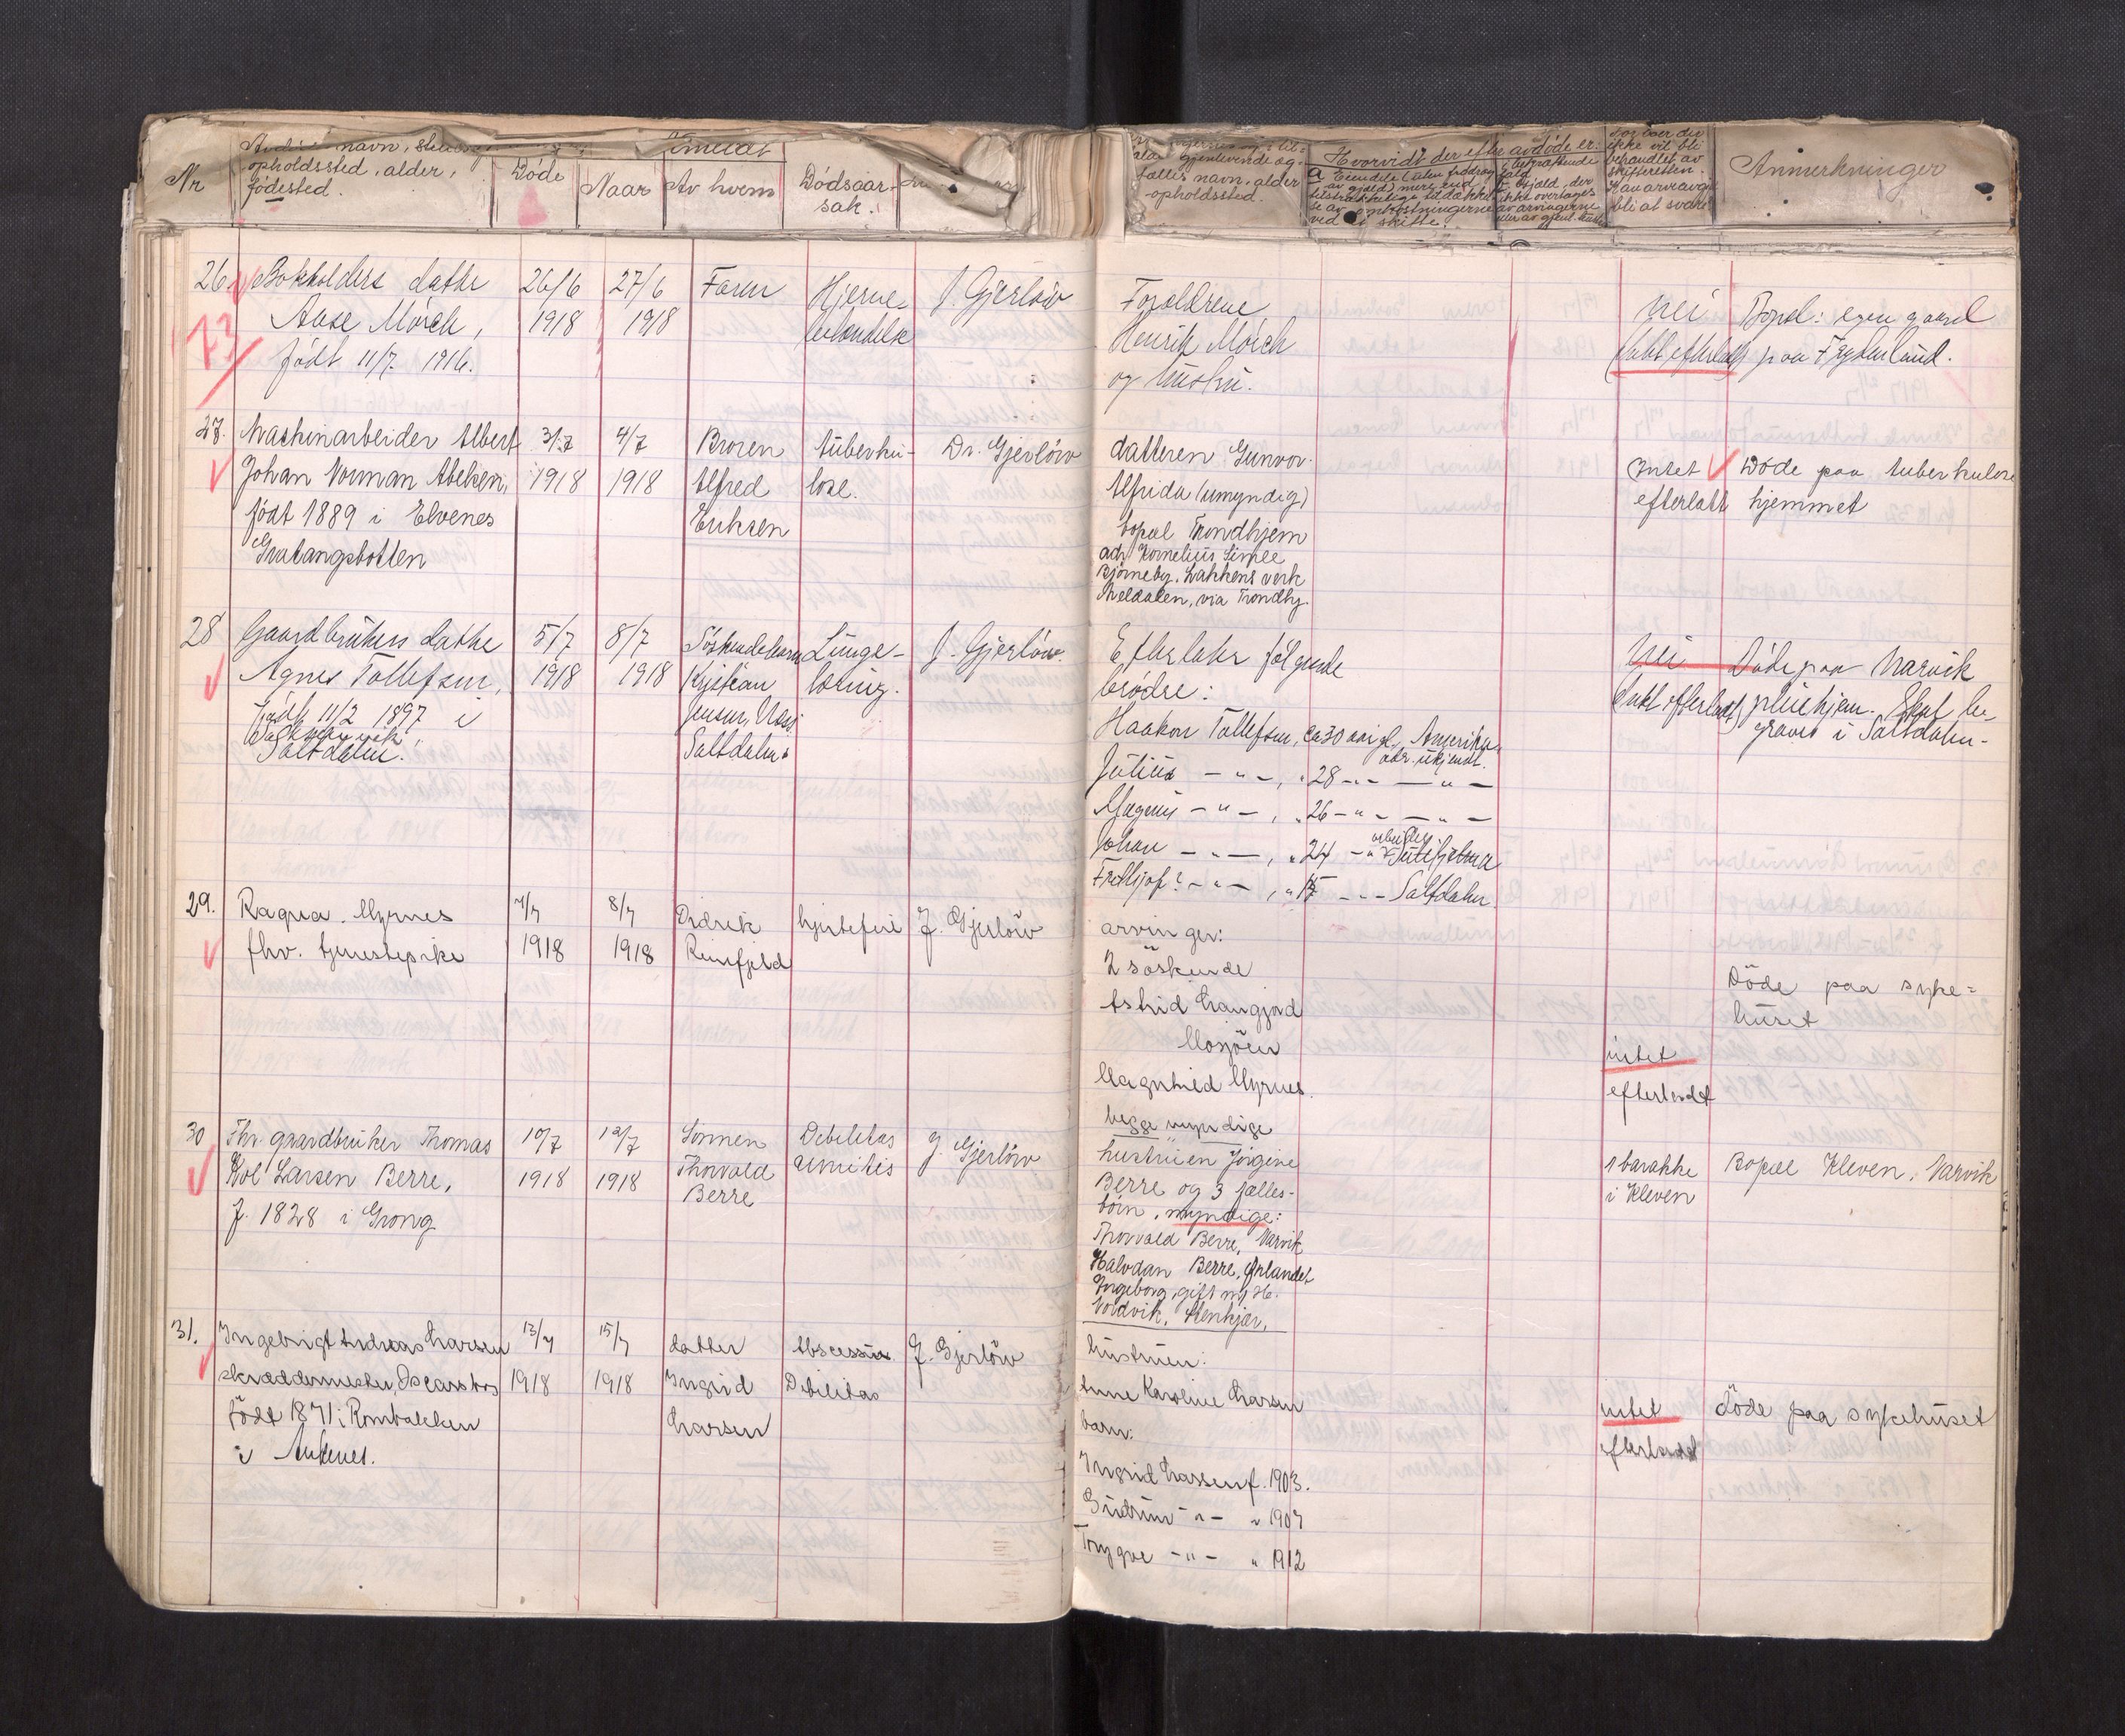 Nr
navn,
opholdssted, alder,
födested.
Döde
Anmeldt
Naar
Av hvem
Dödsaar-
sak.
fælles navn, alder
opholdssted.
Hvorvidt der efter avdöde er:
a Eiendele (uten fradrag
av gjæld) mere end
ved et skifte.
ikke overtages
av arvingerne
ikke vil bli
behandlet av
skifteretten.
bli at svare
Anmerkninger
26. Bokholders datter
Aase Mörch,
födt 11/7 1916.
26/6
1918
27/6
1918
Faren
Hjerne
betændelse
J. Gjerlöw
Forældrene
Henrik Mörch
og hustru.
nei
(intet efterladt)
Bopæl: egen gaard
paa Frydenlund.
27. Maskinarbeider Albert
Johan Norman Abelsen,
födt 1889 i Elvenes
Gratangsbotten
3/7
1918
4/7
1918
Broren
Alfred
Eriksen
tuberku-
lose.
Dr. Gjerlöw
datteren Gunvor
Alfrida (umyndig)
bopæl Trondhjem
adr. Kornelius Simle
Björneby, Løkkens verk
Meldalen, via Trondhj.
Intet
efterlatt
Döde paa tuberkulose
hjemmet
28 Gaardbrukers datter
Agnes Tollefsen,
födt 11/2 1897 i
Saltdalen.
5/7
1918
8/7
1918
Söskendebarn
Kristian
Jensen,
Saltdalen.
Lunge-
tæring.
J. Gjerlöw.
Efterlater fölgende
brödre:
Haakon Tollefsen, ca 30 aar gl, Amerika,
adr. ukjendt.
Julius - " -, " 28 - " - - " -
Magnus - " -, " 26 - " - - " -
Johan - " -, " 24 - " -
arbeider
Sulitjelma
Fridtjof? - " -, " 15 - " - Saltdalen.
nei
Intet efterladt
Döde paa Narvik
pleiehjem. Skal be-
graves i Saltdalen.
29. Ragna Myrnes
fhv. tjenestepike
7/7
1918
8/7
1918
Didrik
Reinfjeld
hjertefeil
J. Gjerlöw
arvinger:
2 söskende
Astrid Langjord
Mosjöen
Magnhild Myrnes.
begge myndige
intet
efterladt
Döde paa syke=
huset
30 Fhv. gaardbruker Thomas
Kol Larsen Berre,
f. 1828 i Grong
10/7
1918
12/7
1918
Sönnen
Thorvald
Berre
Debilitas
senilis
J. Gjerlöw
hustruen Jörgine
Berre og 3 fælles-
börn, myndige:
Thorvald Berre, Narvik
Halvdan Berre, Ørlandet
Ingeborg, gift m/ H.
Nordvik, Stenkjær.
1 barakke
i Kleven
Bopæl Kleven, Narvik
31. Ingebrigt Andreas Larsen
skræddermester, Oscarsborg
födt 1871 i Rombakken
i Ankenes.
13/7
1918
15/7
1918
datter
Ingrid
Larsen
Abscessus
Debilitas
J. Gjerlöw
hustruen:
Anne Karoline Larsen
barn:
Ingrid Larsen f. 1903.
Gudrun - " - " 1907
Trygve - " - " 1912
intet
efterladt
döde paa sykehuset